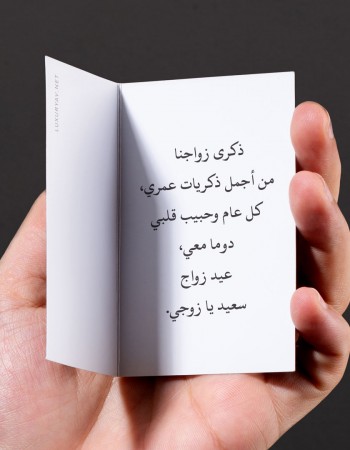 ذكرى زواجنا
من أجمل ذكريات عمري،
كل عام وحبيب قلبي
دوما معي،
عيد زواج
سعيد يا زوجي.
LUXURYBY.NET